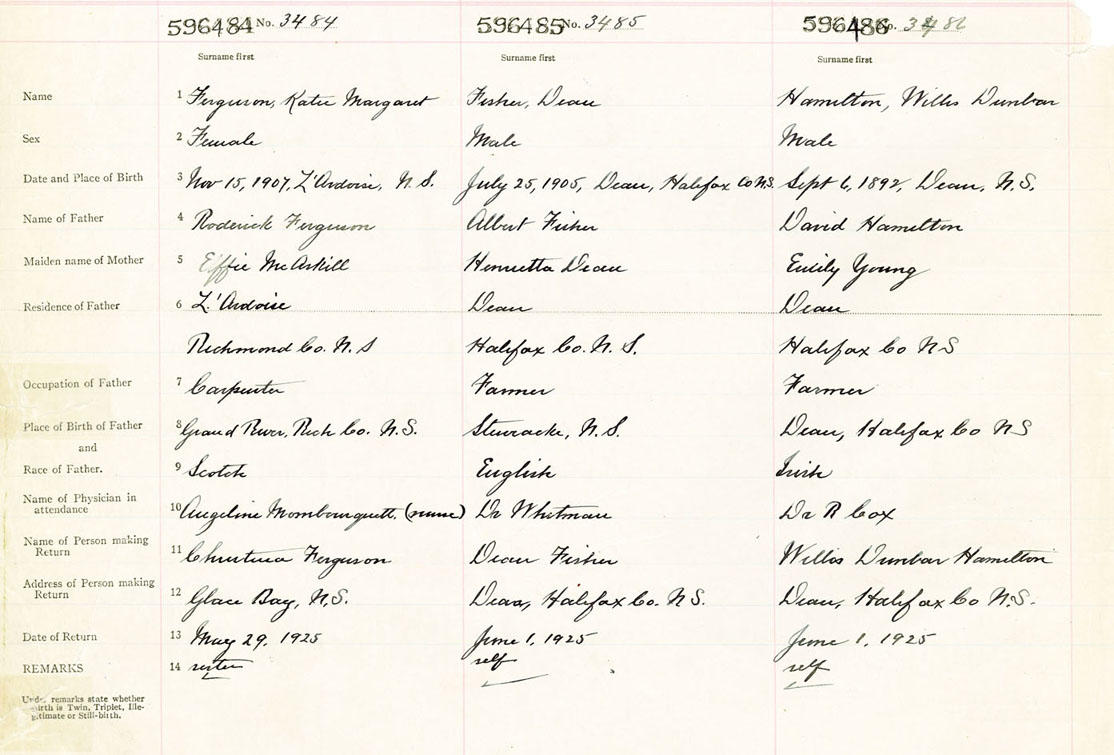 596484 No. 3484 596485 No. 3485 596486 No. 3486
Surname first Surname first Surname first
Name 1 Ferguson, Katie Margaret Fisher, Dean Hamilton, Willis Dunbar
Sex 2 Female Male Male
Date and Place of Birth 3 Nov 15, 1907, L'Ardoise, N.S. July 25, 1905, Dean, Halifax Co N.S. Sept 6, 1892, Dean, N.S.
Name of Father 4 Roderick Ferguson Albert Fisher David Hamilton
Maiden name of Mother 5 Effie McAskill Henrietta Dean Emily Young
Residence of Father 6 L'Ardoise Dean Dean
Richmond Co. N.S Halifax Co. N.S. Halifax Co NS
Occupation of Father 7 Carpenter Farmer Farmer
Place of Birth of Father 8 Grand River, Rich Co. N.S. N.S. Dean, Halifax Co NS
and
Race of Father. 9 Scotch English Irish
Name of Physician in
attendance 10 Angeline Mombourquett. (nurse) Dr Whitman Dr R Cox
Name of Person making
Return 11 Christina Ferguson Dean Fisher Willis Dunbar Hamilton
Address of Person making
Return 12 Glace Bay, N.S. Dean, Halifax Co. N.S. Dean, Halifax Co N.S.
Date of Return 13 May 29, 1925 June 1, 1925 June 1, 1925
REMARKS 14 sister self self
Under remarks state whether
birth is Twin, Triplet, Ille-
gitimate or Still-birth.